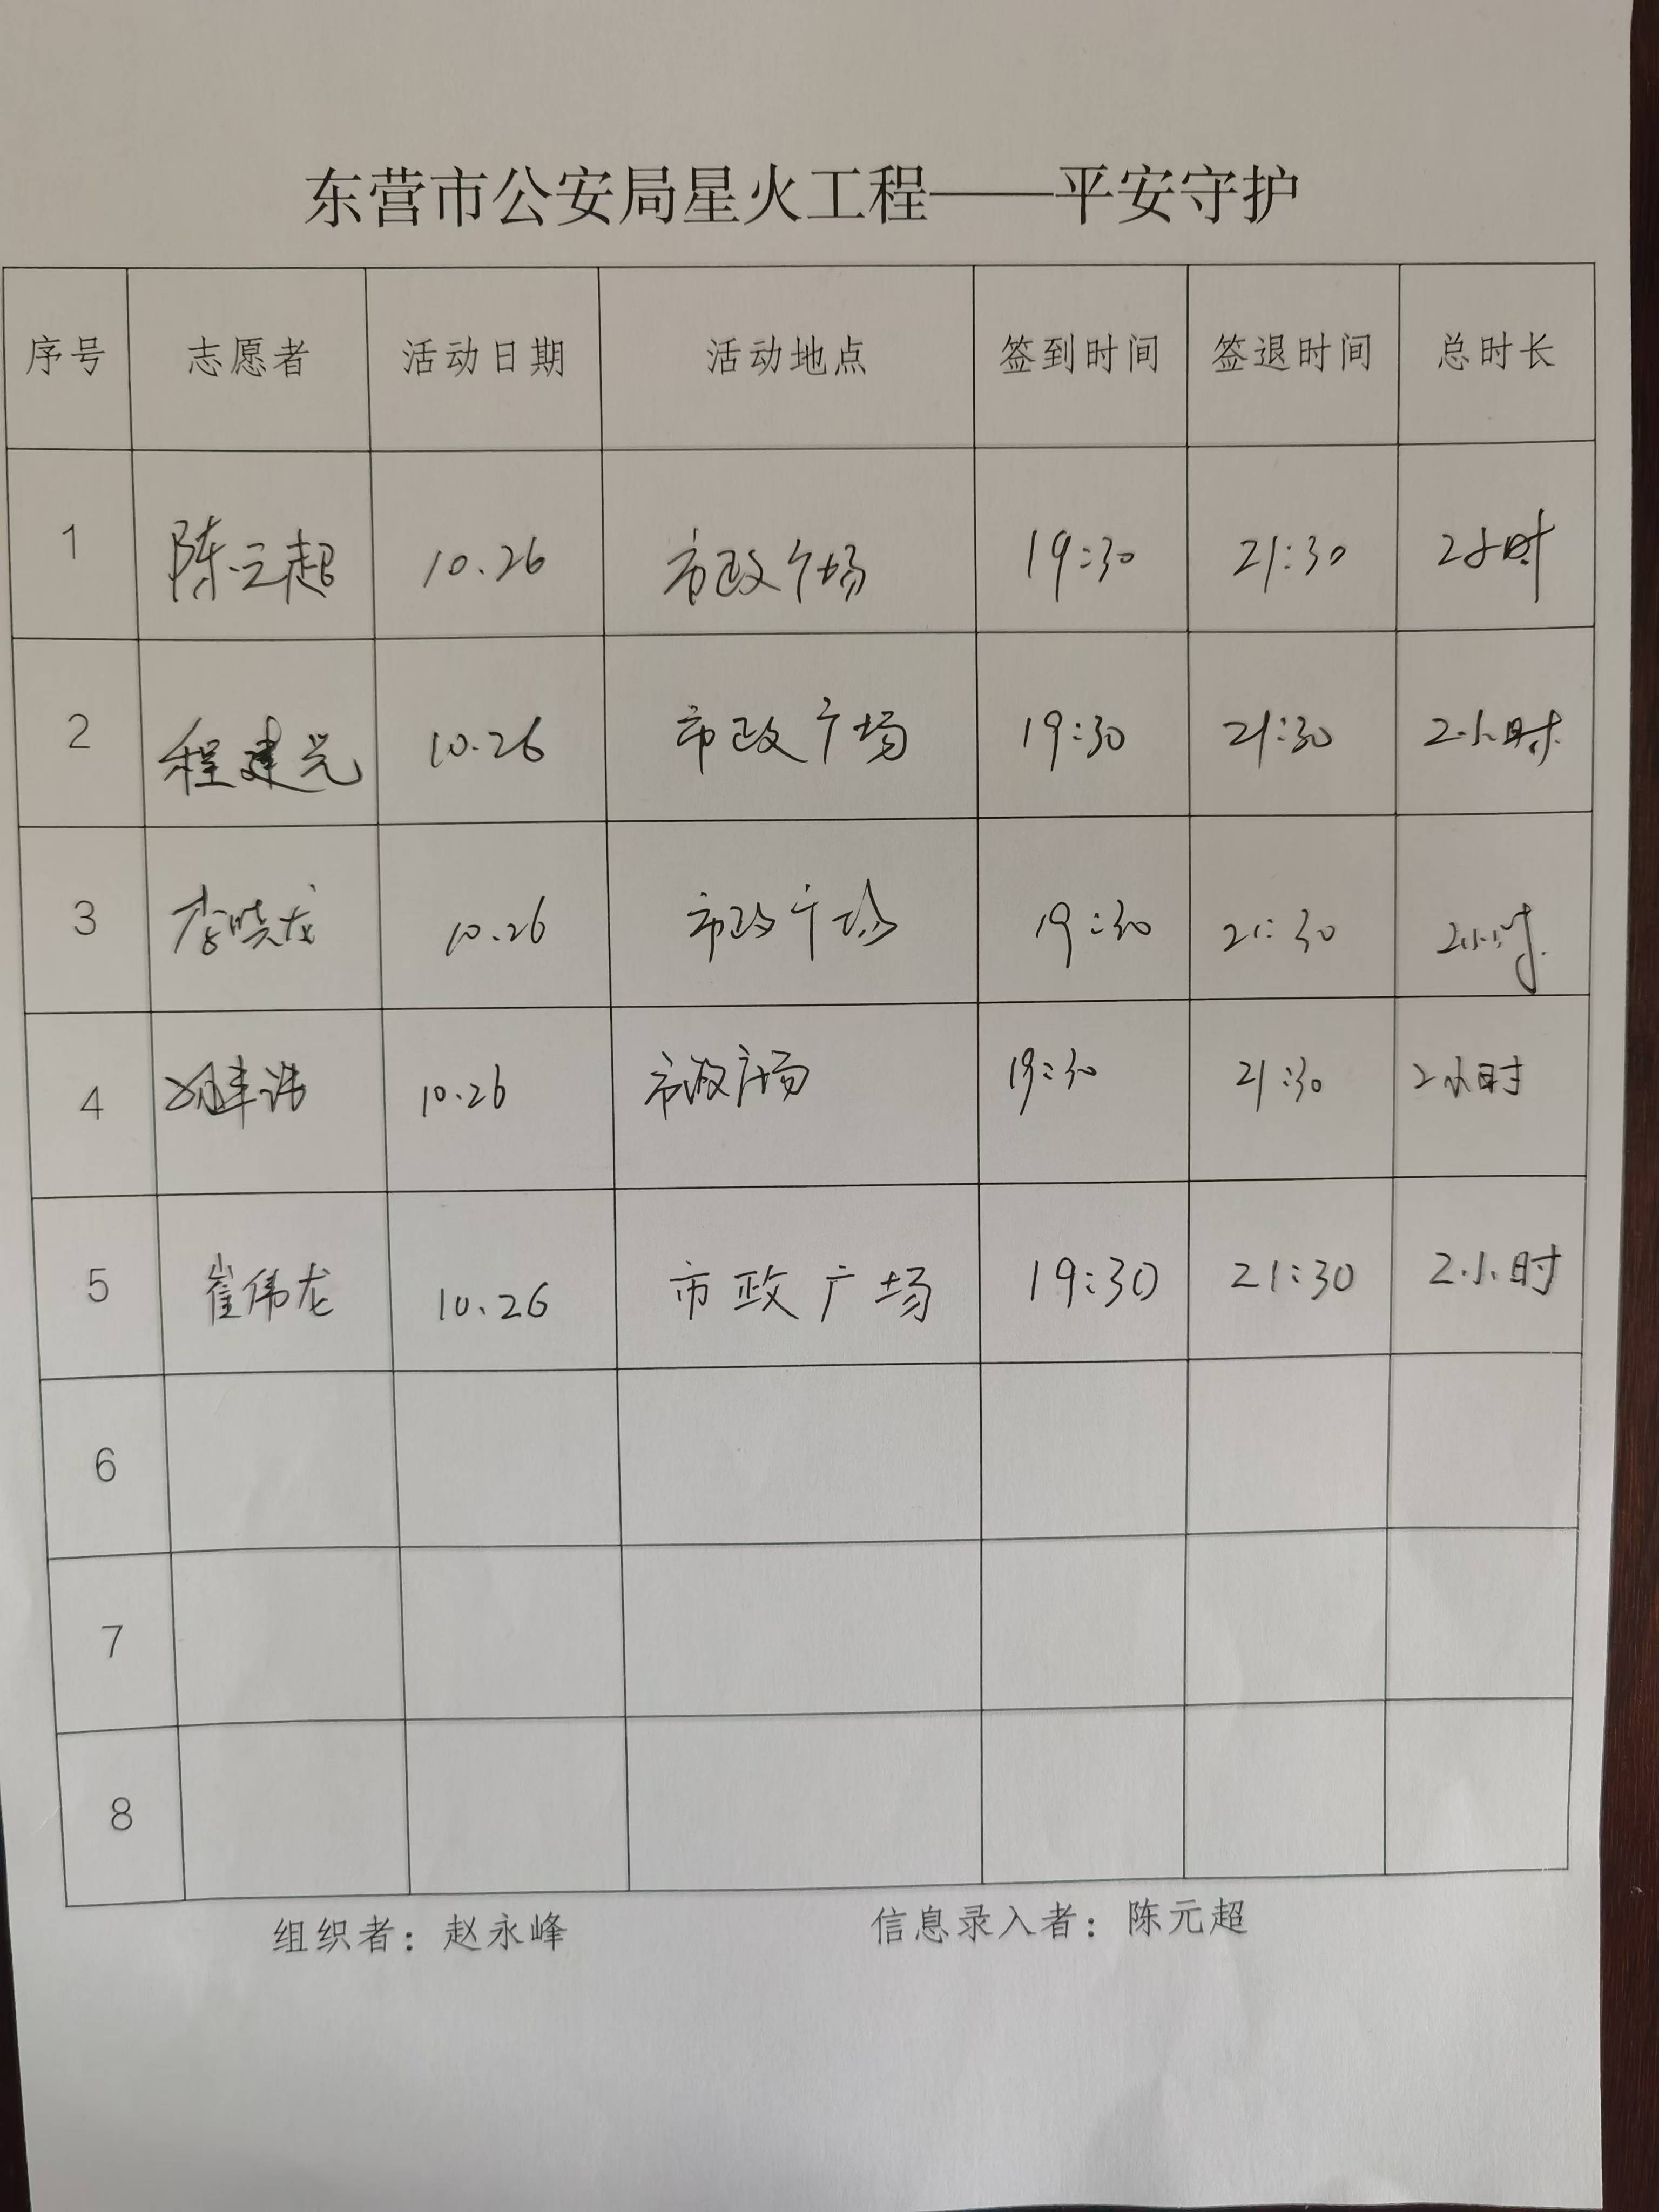 东营市公安局星火工程——平安守护
序号 志愿者 活动日期 活动地点 签到时间 签退时间 总时长
1 陈元超 10.26 市政广场 19:30 21:30 2小时
2 程建 10.26 市政广场 19:30 21:30 2小时
3 李晓龙 10.26 市政广场 19:30 21:30 2小时
4 10.26 市政广场 19:30 21:30 2小时
5 崔伟龙 10.26 市政广场 19:30 21:30 2小时
6
7
8
组织者：赵永峰 信息录入者：陈元超